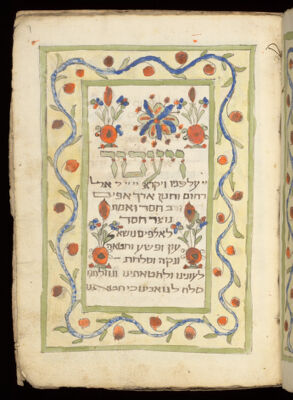 ויעבור
יי על פניו ויקרא ייי אל
רחום וחנון ארך אפים
ורב חסד ואמת
נוצר חסד
לאלפים נושא
עון ופשע וחטאה
ונקה וסלחת
לעוונינו ולחטאתינו ונחלתנו
סלח לנו אבינו כי חטאנו